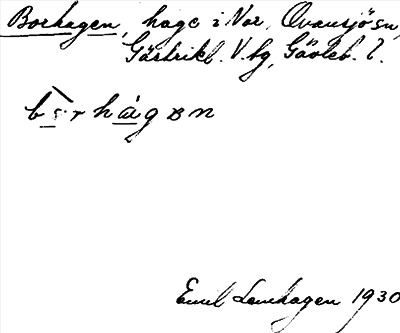 Borhagen, hage i Vor, Ovansjö sn,
Gästrikl. V. bg, Gävleb. l.
Emil Lenhagen 1930